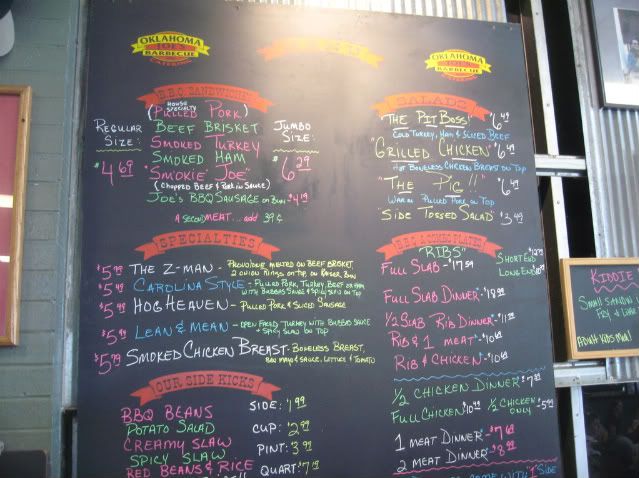 OKLAHOMA
JOE'S
BARBECUE
CATERING
MENU
OKLAHOMA
JOE'S
BARBECUE
CATERING
B.B.Q. SANDWICHES
HOUSE SPECIALTY
(PULLED PORK)
REGULAR SIZE:
$4.69
BEEF BRISKET
SMOKED TURKEY
SMOKED HAM
"SMOKIE JOE"
(CHOPPED BEEF & PORK IN SAUCE)
JUMBO SIZE:
$6.29
JOE'S BBQ SAUSAGE ON BUN $4.19
A SECOND MEAT.... ADD 39¢
SPECIALTIES
$5.99 THE Z-MAN - PROVOLONE MELTED ON BEEF BRISKET,
2 ONION RINGS ON TOP, ON KAISER BUN
$5.49 CAROLINA STYLE - PULLED PORK, TURKEY, BEEF OR HAM
WITH BUBBAS SAUCE & SPICY SLAW ON TOP
$5.49 HOG HEAVEN - PULLED PORK & SLICED SAUSAGE
$5.49 LEAN & MEAN - OPEN FACED TURKEY WITH BUBBAS SAUCE
+ SPICY SLAW ON TOP
$5.99 SMOKED CHICKEN BREAST - BONELESS BREAST,
BBN MAYO & SAUCE, LETTUCE & TOMATO
OUR SIDE KICKS
BBQ BEANS
POTATO SALAD
CREAMY SLAW
SPICY SLAW
RED BEANS & RICE
SIDE: $1.99
CUP: $2.99
PINT: $3.99
QUART: $7.19
SALADS
"THE PIT BOSS" $6.49
COLD TURKEY, HAM & SLICED BEEF
"GRILLED CHICKEN" $6.49
HOT BONELESS CHICKEN BREAST ON TOP
"THE PIG!!" $6.49
WARM PULLED PORK ON TOP
SIDE TOSSED SALAD $3.49
B B Q & COMBO PLATES
"RIBS"
FULL SLAB - $17.59
SHORT END
LONG END
FULL SLAB DINNER - $18.99
1/2 SLAB RIB DINNER - $11.99
RIB & 1 MEAT - $10.99
RIB & CHICKEN - $10.99
1/2 CHICKEN DINNER $7.99
FULL CHICKEN $10.99 1/2 CHICKEN ONLY - $5.99
1 MEAT DINNER - $7.69
2 MEAT DINNER - $8.99
COME WITH "1" SIDE
KIDDIE
SMALL SANDWICH
FRY &
ADULT KIDS MEAL